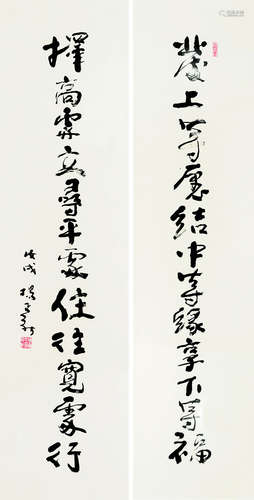 發上等愿結中等緣享下等福
擇高處立尋平處住往寬處行
戊戌